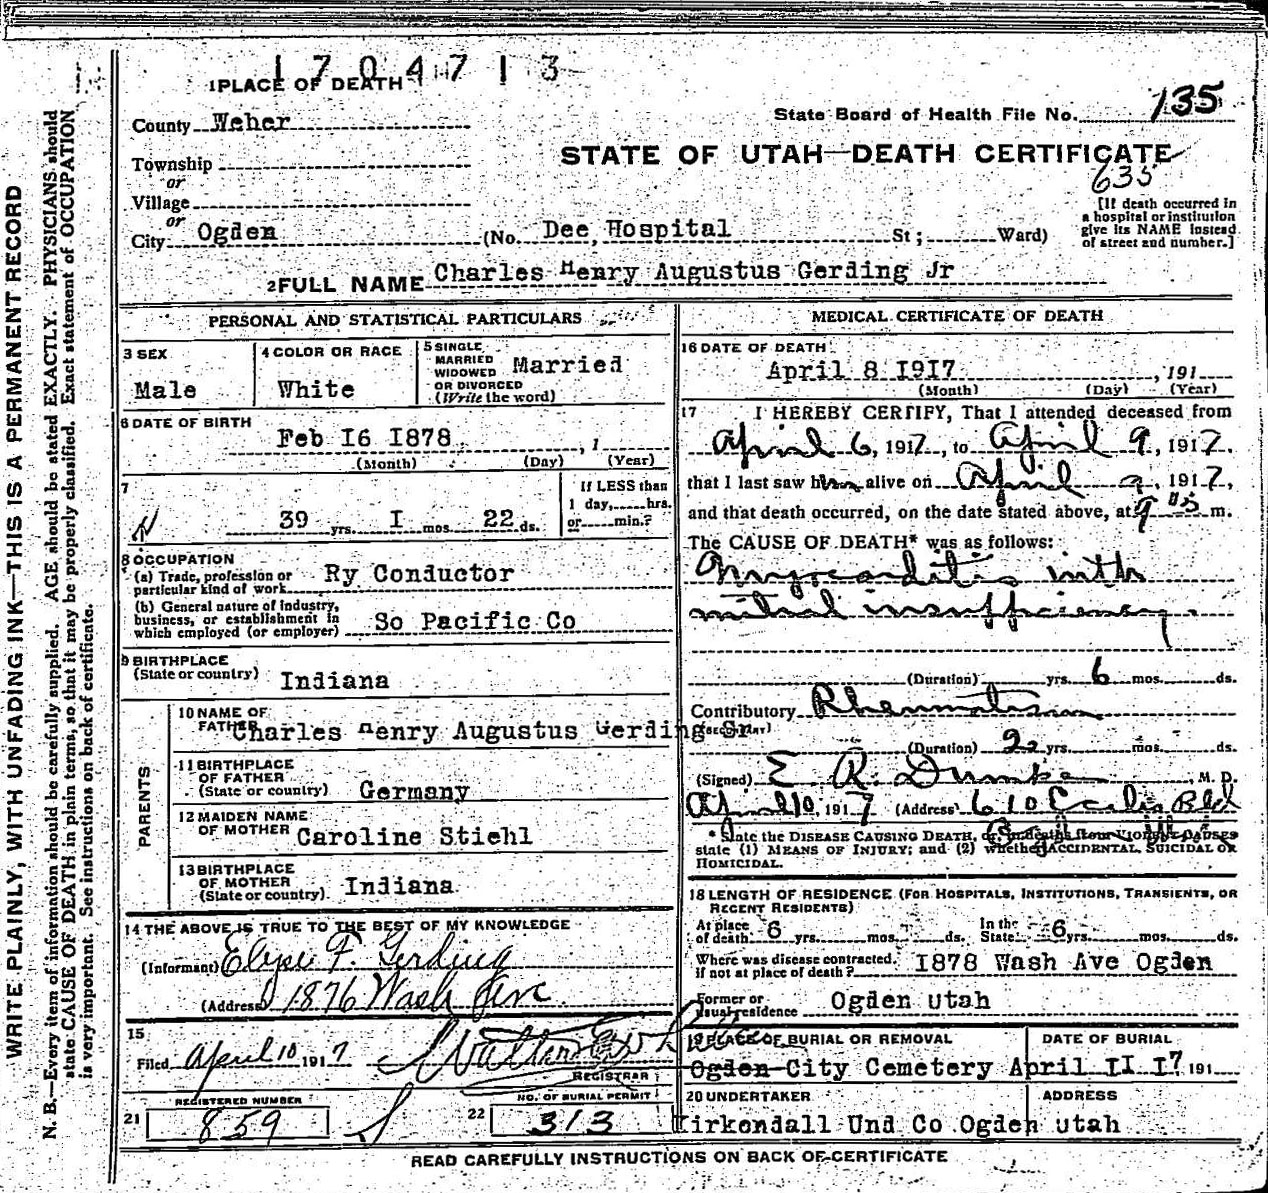 1704713
1 PLACE OF DEATH
State Board of Health File No. 135
County Weber
STATE OF UTAH—DEATH CERTIFICATE
635
Township
or
Village
or
City Ogden (No. Dee Hospital St; Ward)
[If death occurred in
a hospital or institution
give its NAME instead
of street and number.]
2 FULL NAME Charles Henry Augustus Gerding Jr
PERSONAL AND STATISTICAL PARTICULARS
3 SEX
Male
4 COLOR OR RACE
White
5 SINGLE
MARRIED
WIDOWED
OR DIVORCED
(Write the word)
Married
6 DATE OF BIRTH
Feb I6 I878 , 1
(Month) (Day) (Year)
7
39 yrs. I mos. 22 ds.
If LESS than
1 day, hrs.
or min.?
8 OCCUPATION
(a) Trade, profession or
particular kind of work Ry Conductor
(b) General nature of industry,
business, or establishment in
which employed (or employer) So Pacific Co
9 BIRTHPLACE
(State or country) Indiana
PARENTS
10 NAME OF
FATHER Charles Henry Augustus Gerding Sr
11 BIRTHPLACE
OF FATHER
(State or country) Germany
12 MAIDEN NAME
OF MOTHER Caroline Stiehl
13 BIRTHPLACE
OF MOTHER
(State or country) Indiana
14 THE ABOVE IS TRUE TO THE BEST OF MY KNOWLEDGE
(Informant) F. Gerding
(Address) 1876 Wash Ave
15
Filed April 10 1917
REGISTRAR
REGISTERED NUMBER
21 859
NO. OF BURIAL PERMIT
22 313
MEDICAL CERTIFICATE OF DEATH
16 DATE OF DEATH
April 8 I9I7 , 191
(Month) (Day) (Year)
17 I HEREBY CERTIFY, That I attended deceased from
April 6, 1917, to April 9, 1917
that I last saw him alive on April 9, 1917,
and that death occurred, on the date stated above, at 9 m.
The CAUSE OF DEATH* was as follows:
Myocarditis with
mitral insufficiency.
(Duration) yrs. 6 mos. ds.
Contributory Rheumatism
(SECONDARY)
(Duration) 22 yrs. mos. ds.
(Signed) E R. Dumke, M. D.
April 10, 1917 (Address) 610 Eccles Bld
* State the DISEASE CAUSING DEATH, or, in deaths from VIOLENT CAUSES
state (1) MEANS OF INJURY; and (2) whether ACCIDENTAL, SUICIDAL OR
HOMICIDAL.
18 LENGTH OF RESIDENCE (FOR HOSPITALS, INSTITUTIONS, TRANSIENTS, OR
RECENT RESIDENTS)
At place
of death 6 yrs. mos. ds. In the
State 6 yrs. mos. ds.
Where was disease contracted.
if not at place of death? I878 Wash Ave Ogden
Former or
usual residence Ogden Utah
19 PLACE OF BURIAL OR REMOVAL
Ogden City Cemetery
DATE OF BURIAL
April II I7 191
20 UNDERTAKER
Kirkendall Und Co
ADDRESS
Ogden Utah
READ CAREFULLY INSTRUCTIONS ON BACK OF CERTIFICATE
WRITE PLAINLY, WITH UNFADING INK—THIS IS A PERMANENT RECORD
N. B.—Every item of information should be carefully supplied. AGE should be stated EXACTLY. PHYSICIANS should
state CAUSE OF DEATH in plain terms, so that it may be properly classified. Exact statement of OCCUPATION
is very important. See instructions on back of certificate.